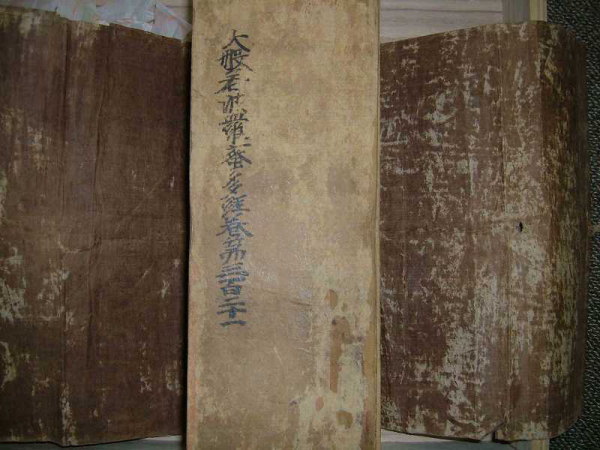 大般若波羅蜜多経巻第三百二十一